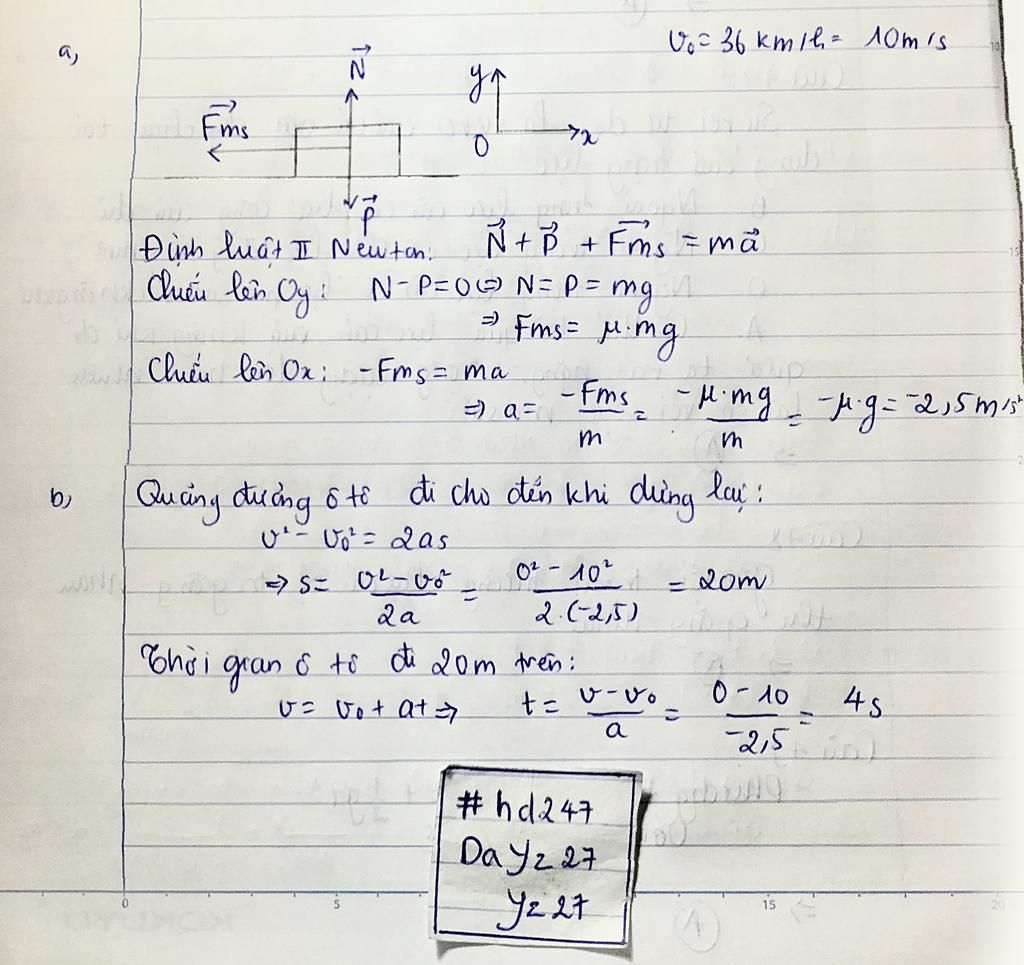 a,
v₀ = 36 km/h = 10m/s
N⃗
y
F⃗ms
O
x
P⃗
Định luật II Newton: N⃗ + P⃗ + F⃗ms = ma⃗
Chiếu lên Oy: N - P = 0 ⇔ N = P = mg
⇒ Fms = μ.mg
Chiếu lên Ox: -Fms = ma
⇒ a = -Fms/m = -μ.mg/m = -μ.g = -2,5m/s²
b, Quãng đường ô tô đi cho đến khi dừng lại:
v² - v₀² = 2as
⇒ s = (v² - v₀²)/2a = (0² - 10²)/2.(-2,5) = 20m
Thời gian ô tô đi 20m trên:
v = v₀ + at ⇒ t = (v - v₀)/a = (0 - 10)/-2,5 = 4s
#hd247
DaYz27
Yz27
0 5 15 20